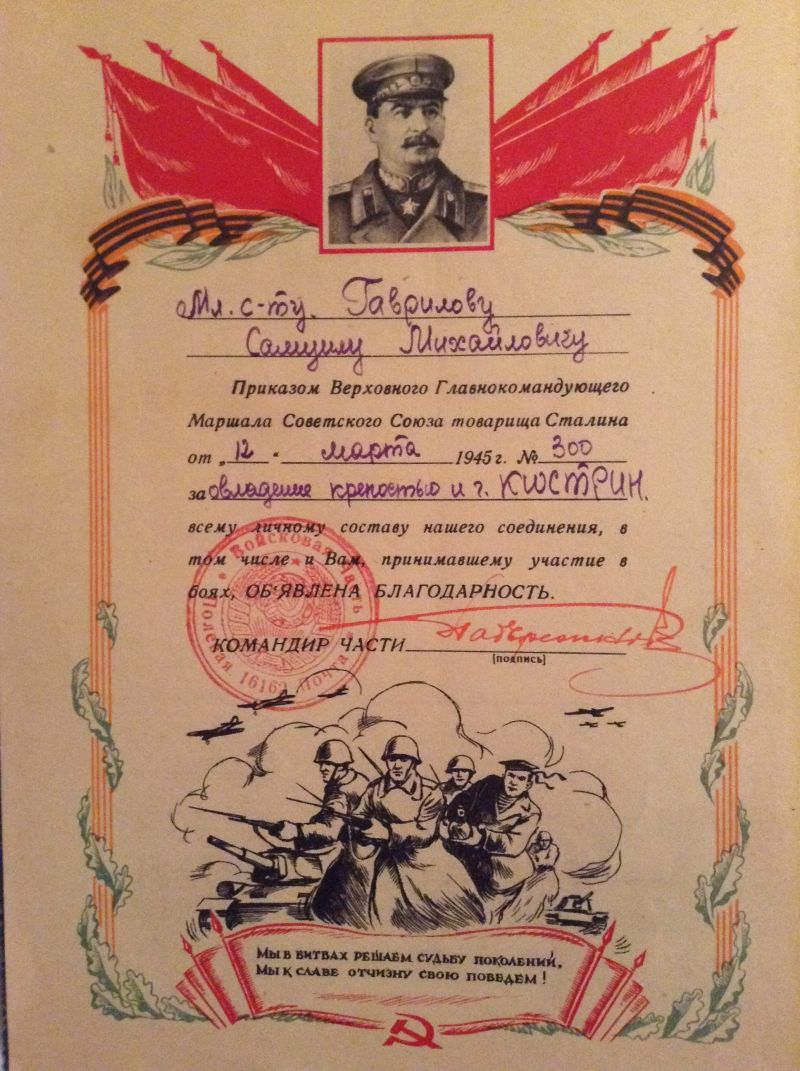 Мл. с-ту. Гаврилову
Самуилу Михайловичу
Приказом Верховного Главнокомандующего
Маршала Советского Союза товарища Сталина
от „12“ марта 1945 г. № 300
за овладение крепостью и г. КЮСТРИН.
всему личному составу нашего соединения, в
том числе и Вам, принимавшему участие в
боях, ОБ'ЯВЛЕНА БЛАГОДАРНОСТЬ.
КОМАНДИР ЧАСТИ
(подпись)
Войсковая часть
Полевая Почта 16162
МЫ В БИТВАХ РЕШАЕМ СУДЬБУ ПОКОЛЕНИЙ,
МЫ К СЛАВЕ ОТЧИЗНУ СВОЮ ПОВЕДЕМ!